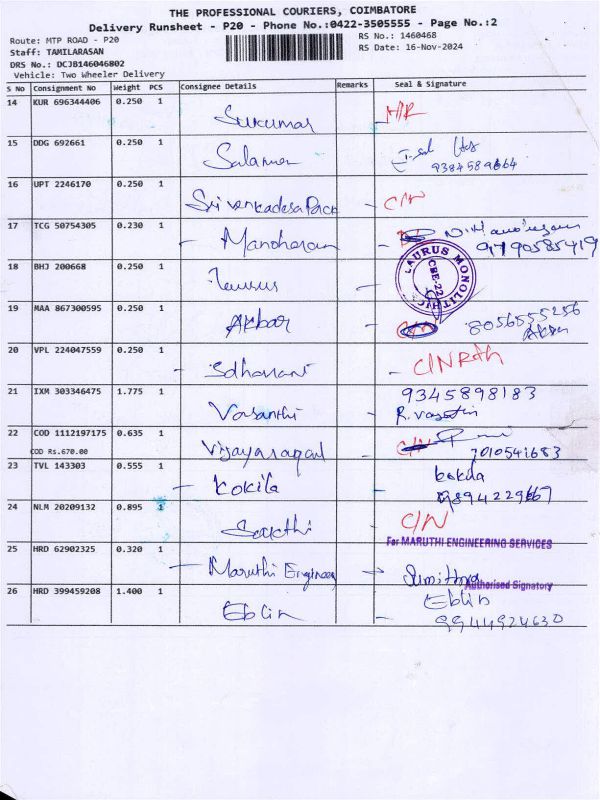 THE PROFESSIONAL COURIERS, COIMBATORE
Delivery Runsheet - P20 - Phone No.:0422-3505555 - Page No.:2
Route: MTP ROAD - P20
RS No.: 1460468
Staff: TAMILARASAN
RS Date: 16-Nov-2024
DRS No.: DCJB146046802
Vehicle: Two Wheeler Delivery
S No Consignment No Weight PCS Consignee Details Remarks Seal & Signature
14 KUR 696344406 0.250 1 Sukumar
15 DDG 692661 0.250 1 Salaman
9384589664
16 UPT 2246170 0.250 1 Sri venkadesa Pack - C/N
17 TCG 50754305 0.230 1 - Manoharan
9790585419
18 BHJ 200668 0.250 1 Taurus
LAURUS MONOLITHIC
CBE-22
19 MAA 867300595 0.250 1 Akbar - C/N 8056555256
20 VPL 224047559 0.250 1 - Sdhanani - C/N
21 IXM 303346475 1.775 1 Vasanthi - 9345898183
22 COD 1112197175 0.635 1 Vijayaragavl - C/N
COD Rs.670.00
7010541683
23 TVL 143303 0.555 1 - kokila - kokila
9894229667
24 NLM 20209132 0.895 1 Sakthi C/N
For MARUTHI ENGINEERING SERVICES
25 HRD 62902325 0.320 1 - Maruthi Engineer - Sumithra
Authorised Signatory
26 HRD 399459208 1.400 1 Eblin - Eblin
9944924630